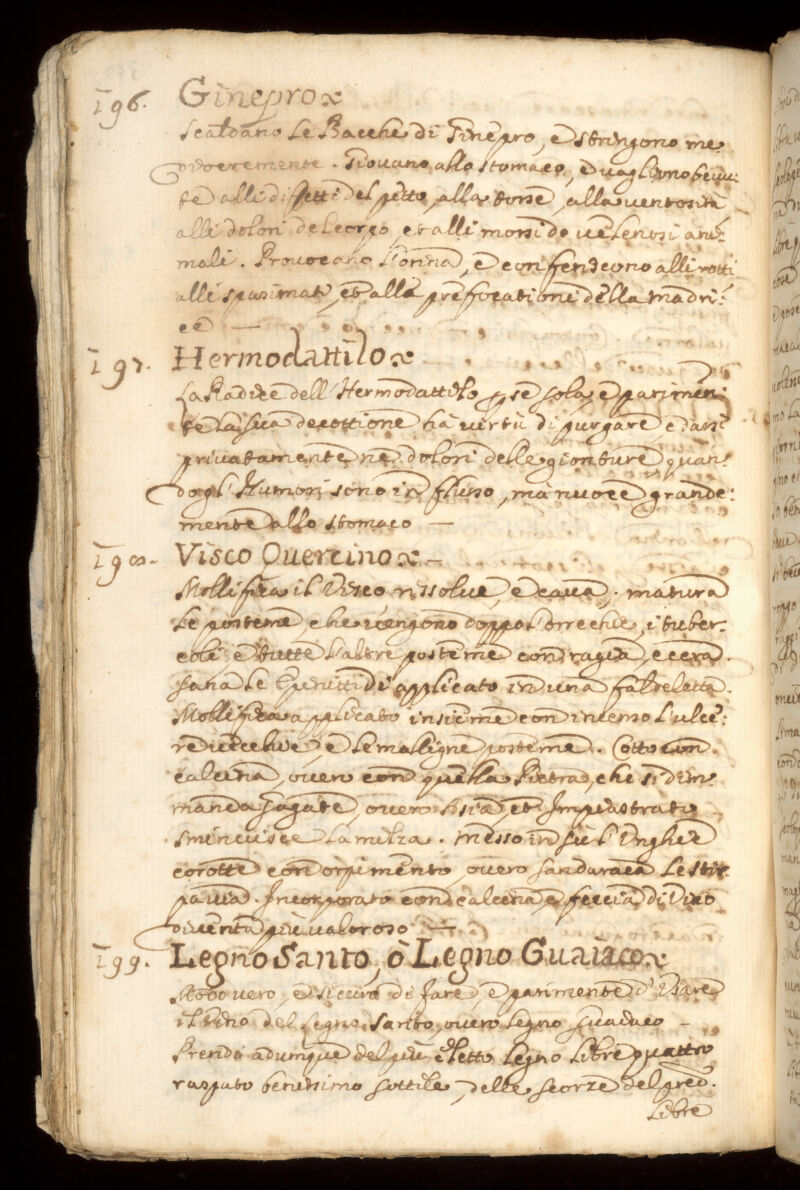 196. Ginepro
Scaldano le Bacche di Ginepro, è stringono me
diocremente. Giovano allo stomaco, è vagliono beuu:
te alli difetti del petto, alla tosse, alla ventosità
alli dolori de lcorpo et alli morsi de velenosi ani:
mali. Provocano l'orina, è conferiscono alli rotti
alli spasimati, et alla prefocatione della madri:
ce —
197. Hermodattilo
La Radice dell'Hermodattilo p se sola, è parimen:
te la sua decottione hà virtù di purgare, e dassi
privatamente ne dolori delle gionture quan:
do gl'Humori sono in flusso, mà nuoce grande:
mente allo stomaco —
198. Visco Quercino —
Mollifica il Visco rissolue, è caua, matura
le posteme, che vengono doppo l'orrechie, i tuber:
coli è tutte l'altre posteme con ragia, e cera.
Sana le Epinittidi applicato in una faldeletta.
Mollifica applicato insieme con incenso l'ulce:
re vecchie, è le malligne posteme. Cotto con
calcina, overo con quella Pietra, che si dim:
manda Gagate, overo Asia, et Impiastrato
sminuisce la milza. Messo in sù l'Unghie
corotte con orpimento, overo sandaraca le stir
pa via. Incorporato con calcina, e feccia di Vino
diventa più valoroso —
199. Legno Santo, ò Legno Guaiaco
Modo vero, è sicuro di fare, è parimente d'Usare
il Vino del Legno Santo, overo Legno Guaiaco –
Prendi adumque del più eletto Legno Libre quattro
raspato benissimo sottile, delle scorze del pred.
Libre